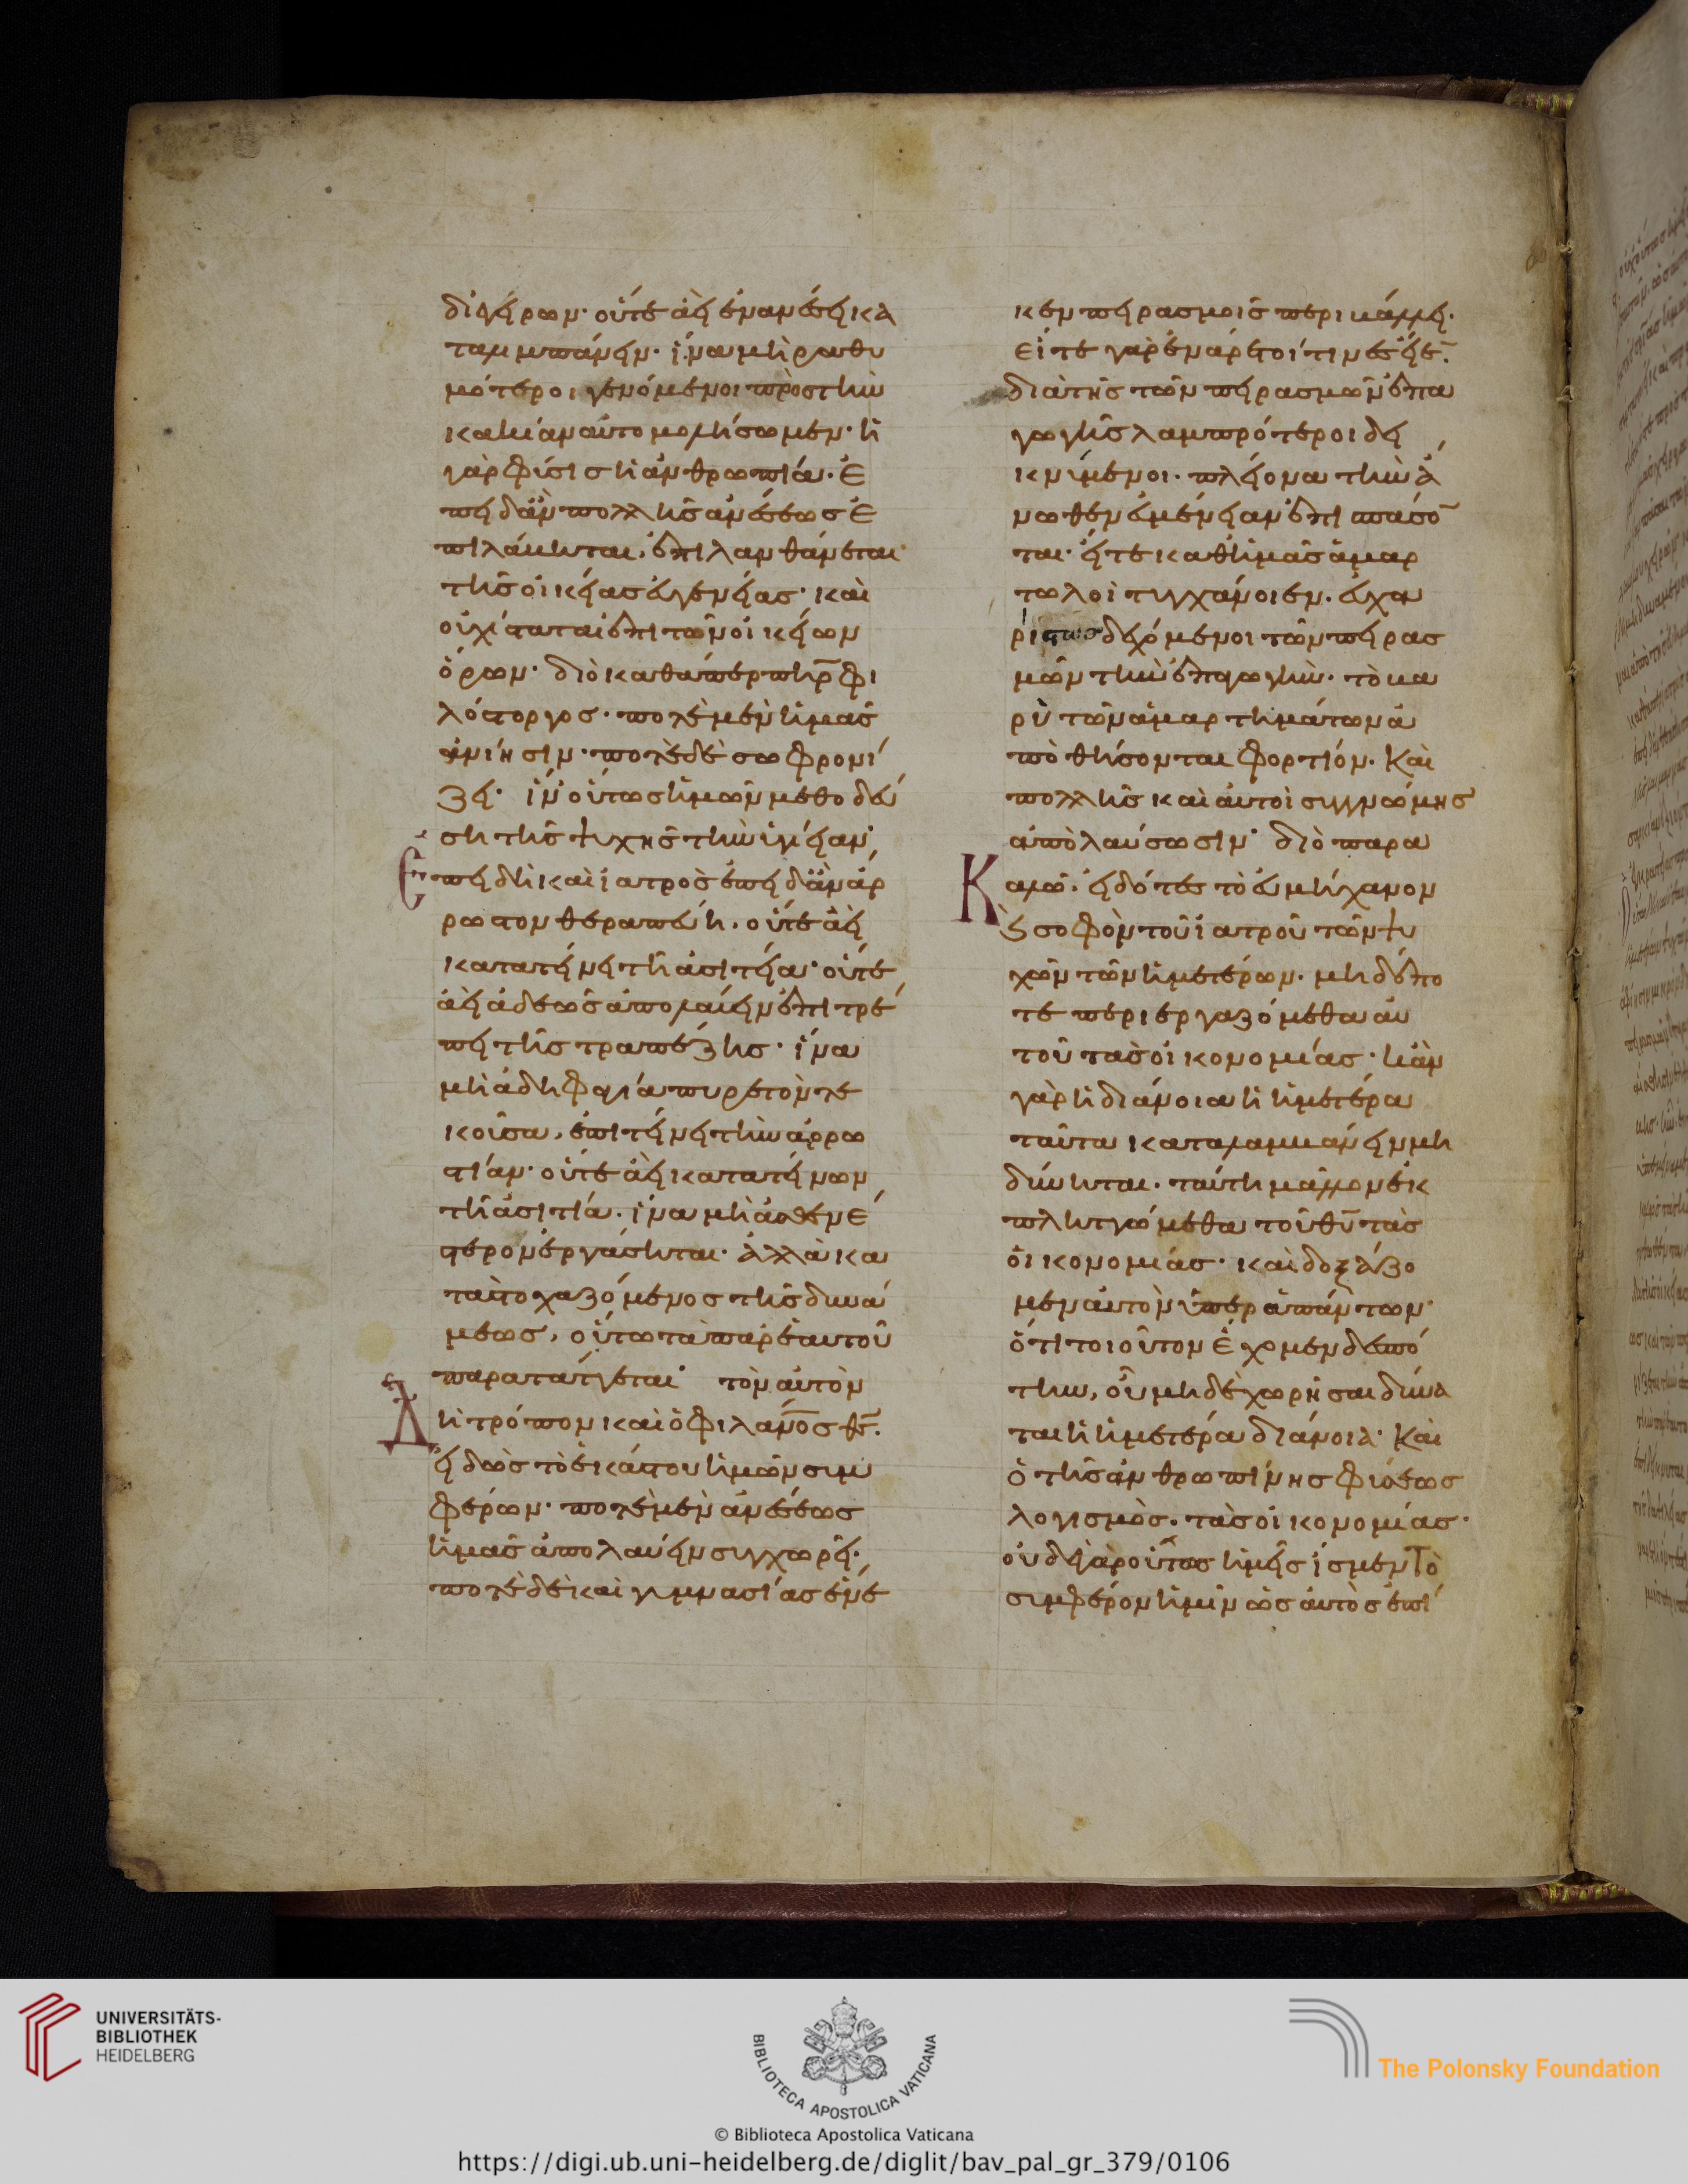 διαφέρων· οὔτε ἀεὶ ἐν ἀνέσει κα
ταλιμπάνειν· ἵνα μὴ ῥαθυ
μότεροι γενόμενοι πρὸς τὴν
κακίαν αὐτομολήσωμεν· ἡ
γὰρ φύσις ἡ ἀνθρωπία· ἐ
πειδὰν πολλῆς ἀνέσεως ἐ
πιλάβηται, ἐπιλανθάνεται
τῆς οἰκείας εὐγενείας· καὶ
οὐχ ἵσταται ἐπὶ τῶν οἰκείων
ὅρων· διὸ καθάπερ πηρ φι
λόστοργος· ποτὲ μὲν ἡμᾶς
ἀνίησιν· ποτὲ δὲ σωφρονί
ζει· ἵν' οὕτως ἡμῶν μεθοδεύ
ση τῆς ψυχῆς τὴν ὑγίειαν·
Ἐπειδὴ καὶ ἰατρὸς ἐπειδὰν ἄρ
ρωστον θεραπεύη· οὔτε ἀεὶ
κατατείνει τῆ ἀσιτεία· οὔτε
ἀεὶ ἀδεῶς ἀπολαύειν ἐπιτρέ
πει τῆς τραπέζης· ἵνα
μὴ ἀδηφαγία πυρετὸν τε
κοῦσα, ἐπιτείνει τὴν ἀρρω
στίαν· οὔτε ἀεὶ κατατείνων
τῆ ἀσιτία· ἵνα μὴ ἀσθενέ
στερον ἐργάσηται· ἀλλὰ κα
ταστοχαζόμενος τῆς δυνά
μεως, οὕτω τὰ παρ' ἑαυτοῦ
παρατάττεται· τὸν αὐτὸν
Δὴ τρόπον καὶ ὁ φιλανος θς·
εἰδὼς τὸ ἑκάστου ἡμῶν συμ
φέρων· ποτὲ μὲν ἀνέσεως
ἡμᾶς ἀπολαύειν συγχωρεῖ·
ποτὲ δὲ καὶ γυμνασίας ἕνε
κεν πειρασμοῖς περιβάλλει·
εἴτε γὰρ ἐνάρετοί τινες εἶεν
διὰ τῆς τῶν πειρασμῶν ἐπα
γωγῆς λαμπρότεροι δει
κνύμενοι· πλείονα τὴν ἄ
νωθεν εὐμένειαν ἐπισπάσο
ται· εἴτε καθ' ἡμᾶς ἁμαρ
τωλοὶ τυγχάνοιεν· εὐχα
ρίστως δεχόμενοι τῶν πειρασ
μῶν τὴν ἐπαγωγὴν· τὸ βα
ρὺ τῶν ἁμαρτημάτων ἀ
πὸθήσονται φορτίον· Καὶ
πολλῆς καὶ αὐτοὶ συγγνώμης
ἀπὸλαύσωσιν· διὸ παρα
Καλῶ· εἰδότες τὸ εὐμήχανον
ϗ σοφὸν τοῦ ἰατροῦ τῶν ψυ
χῶν τῶν ἡμετέρων· μηδέπο
τε περιεργαζόμεθα αὐ
τοῦ τὰς οἰκονομίας· κἂν
γὰρ ἡ διάνοια ἡ ἡμετέρα
ταῦτα καταλαμβάνειν μὴ
δύνηται· ταύτη μᾶλλον ἐκ
πληττώμεθα τοῦ θυ τὰς
οἰκονομίας· καὶ δοξάζο
μεν αὐτὸν ὑπὲρ ἁπάντων·
ὅτι τοιοῦτον ἔχομεν δεσπό
την, οὗ μηδὲ χωρῆσαι δύνα
ται ἡ ἡμετέρα διάνοια· Καὶ
ὁ τῆς ἀνθρωπίνης φύσεως
λογισμὸς· τὰς οἰκονομίας·
οὐδὲ γὰρ οὕτως ἡμεῖς ἴσμεν Τὸ
συμφέρον ἡμῖν ὡς αὐτὸς ἐπί
UNIVERSITÄTS-
BIBLIOTHEK
HEIDELBERG
BIBLIOTECA APOSTOLICA VATICANA
The Polonsky Foundation
© Biblioteca Apostolica Vaticana
https://digi.ub.uni-heidelberg.de/diglit/bav_pal_gr_379/0106